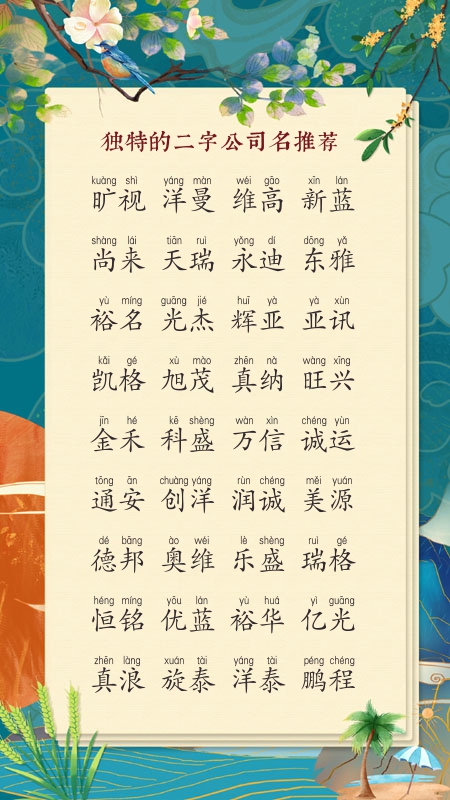 独特的二字公司名推荐
kuàng shì yáng màn wéi gāo xīn lán
旷视 洋曼 维高 新蓝
shàng lái tiān ruì yǒng dí dōng yǎ
尚来 天瑞 永迪 东雅
yù míng guāng jié huī yà yà xùn
裕名 光杰 辉亚 亚讯
kǎi gé xù mào zhēn nà wàng xīng
凯格 旭茂 真纳 旺兴
jīn hé kē shèng wàn xìn chéng yùn
金禾 科盛 万信 诚运
tōng ān chuàng yáng rùn chéng měi yuán
通安 创洋 润诚 美源
dé bāng ào wéi lè shèng ruì gé
德邦 奥维 乐盛 瑞格
héng míng yōu lán yù huá yì guāng
恒铭 优蓝 裕华 亿光
zhēn làng xuán tài yáng tài péng chéng
真浪 旋泰 洋泰 鹏程